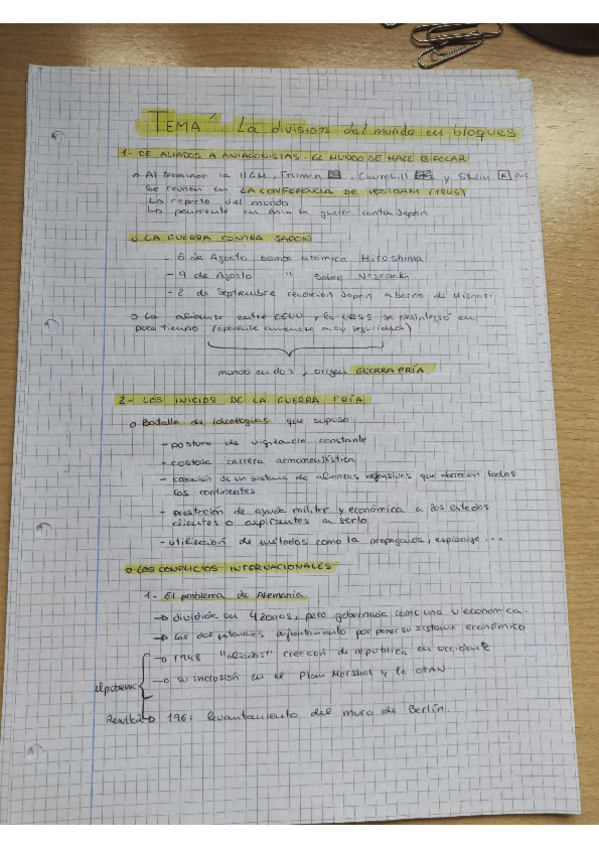 TEMA La division del mundo en bloques
1- DE ALIADOS A ANTAGONISTAS. EL MUNDO SE HACE BIPOLAR
Al terminar la IIGM, Truman, Churchill y Stalin
se reunen en LA CONFERENCIA DE (1945)
Lo reparto del mundo
Lo en Asia la guerra contra Japón
LA GUERRA CONTRA JAPÓN
- 6 de Agosto bomba atómica Hiroshima
- 9 de Agosto " sobre
- 2 de Septiembre Japón a bordo de
La alianza entre EEUU y la URSS se desintegró en
poco tiempo
mundo en dos, origen GUERRA FRÍA
2- LOS INICIOS DE LA GUERRA FRÍA
Batalla de ideologías que supuso
- postura de vigilancia constante
- costosa carrera armamentística
- creación de un sistema de alianzas defensivas que todos
los continentes
- prestación de ayuda militar y económica a los estados
clientes o aspirantes a serlo
- utilización de métodos como la propaganda, espionaje...
LOS CONFLICTOS INTERNACIONALES
1- El problema de Alemania
→ dividida en 4 zonas, pero gobernada como una u económica.
→ Las dos por poner su sistema económico
→ 1948 "aliados" creación de republica en occidente
→ su inclusión en el Plan Marshal y la OTAN
el problema
1961 levantamiento del muro de Berlín.